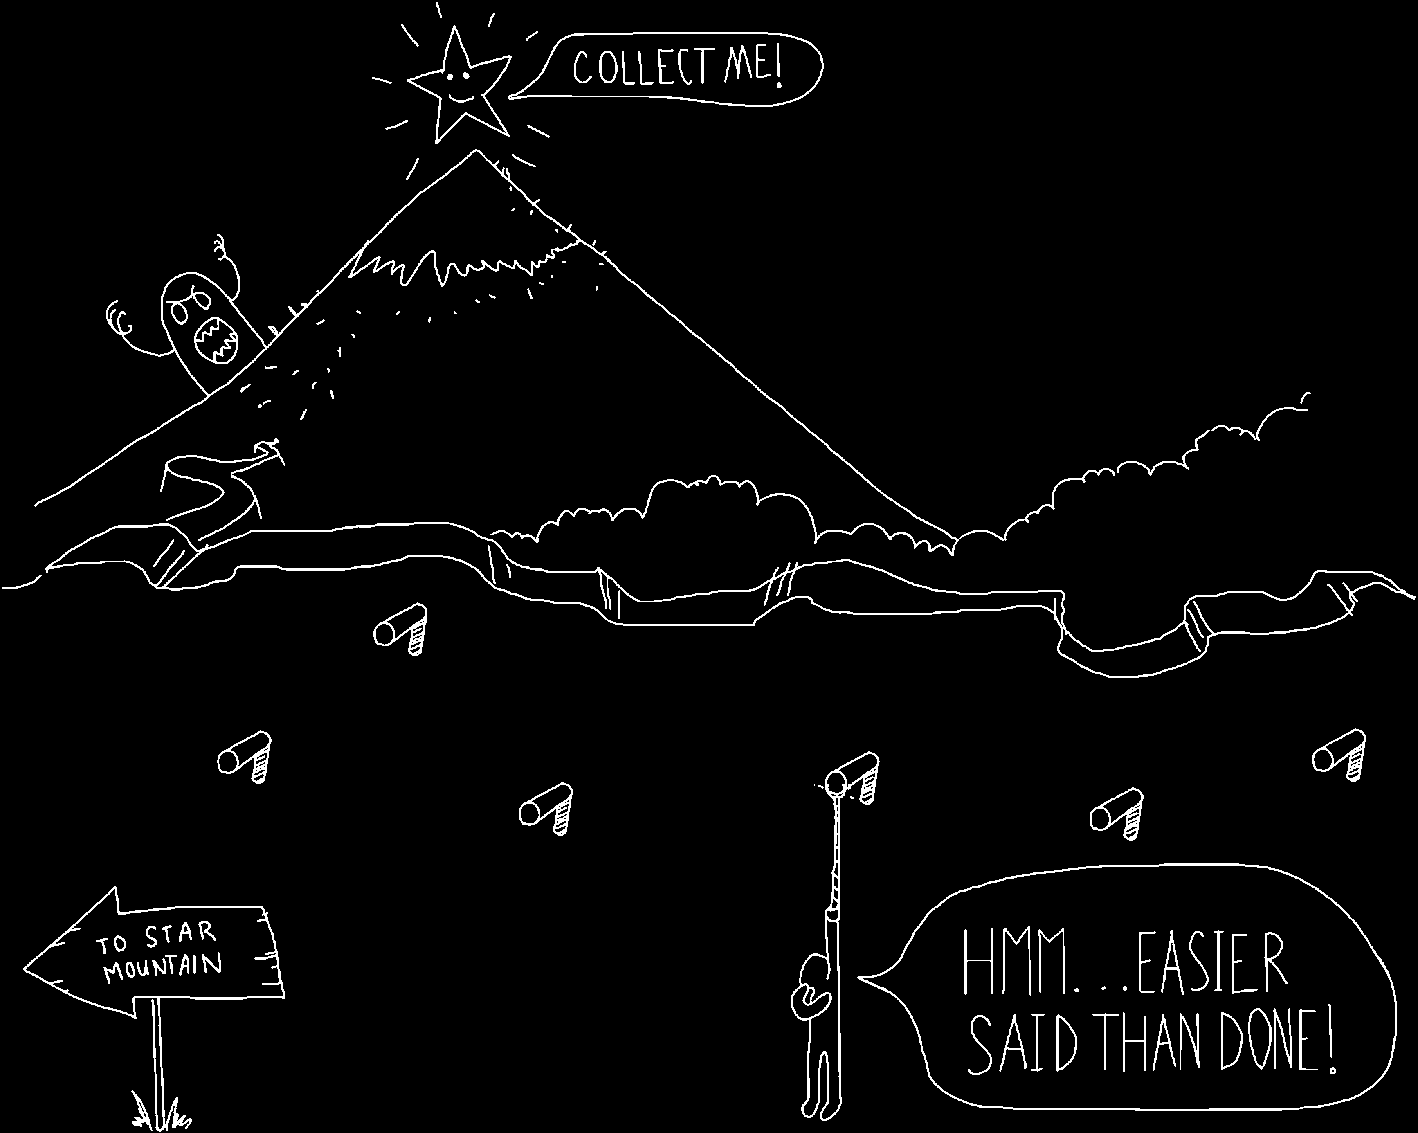 COLLECT ME!
TO STAR
MOUNTAIN
HMM...EASIER
SAID THAN DONE!